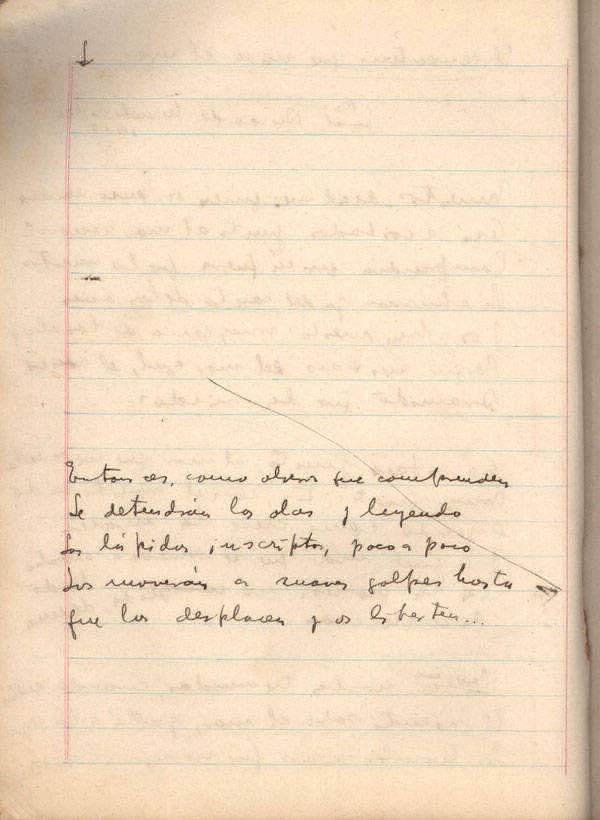 Entonces, como obreros que comprenden
Se detendrán las olas y leyendo
Las lápidas inscriptas, poco a poco
Las moverán a suaves golpes hasta
que las desplacen y os liberten...